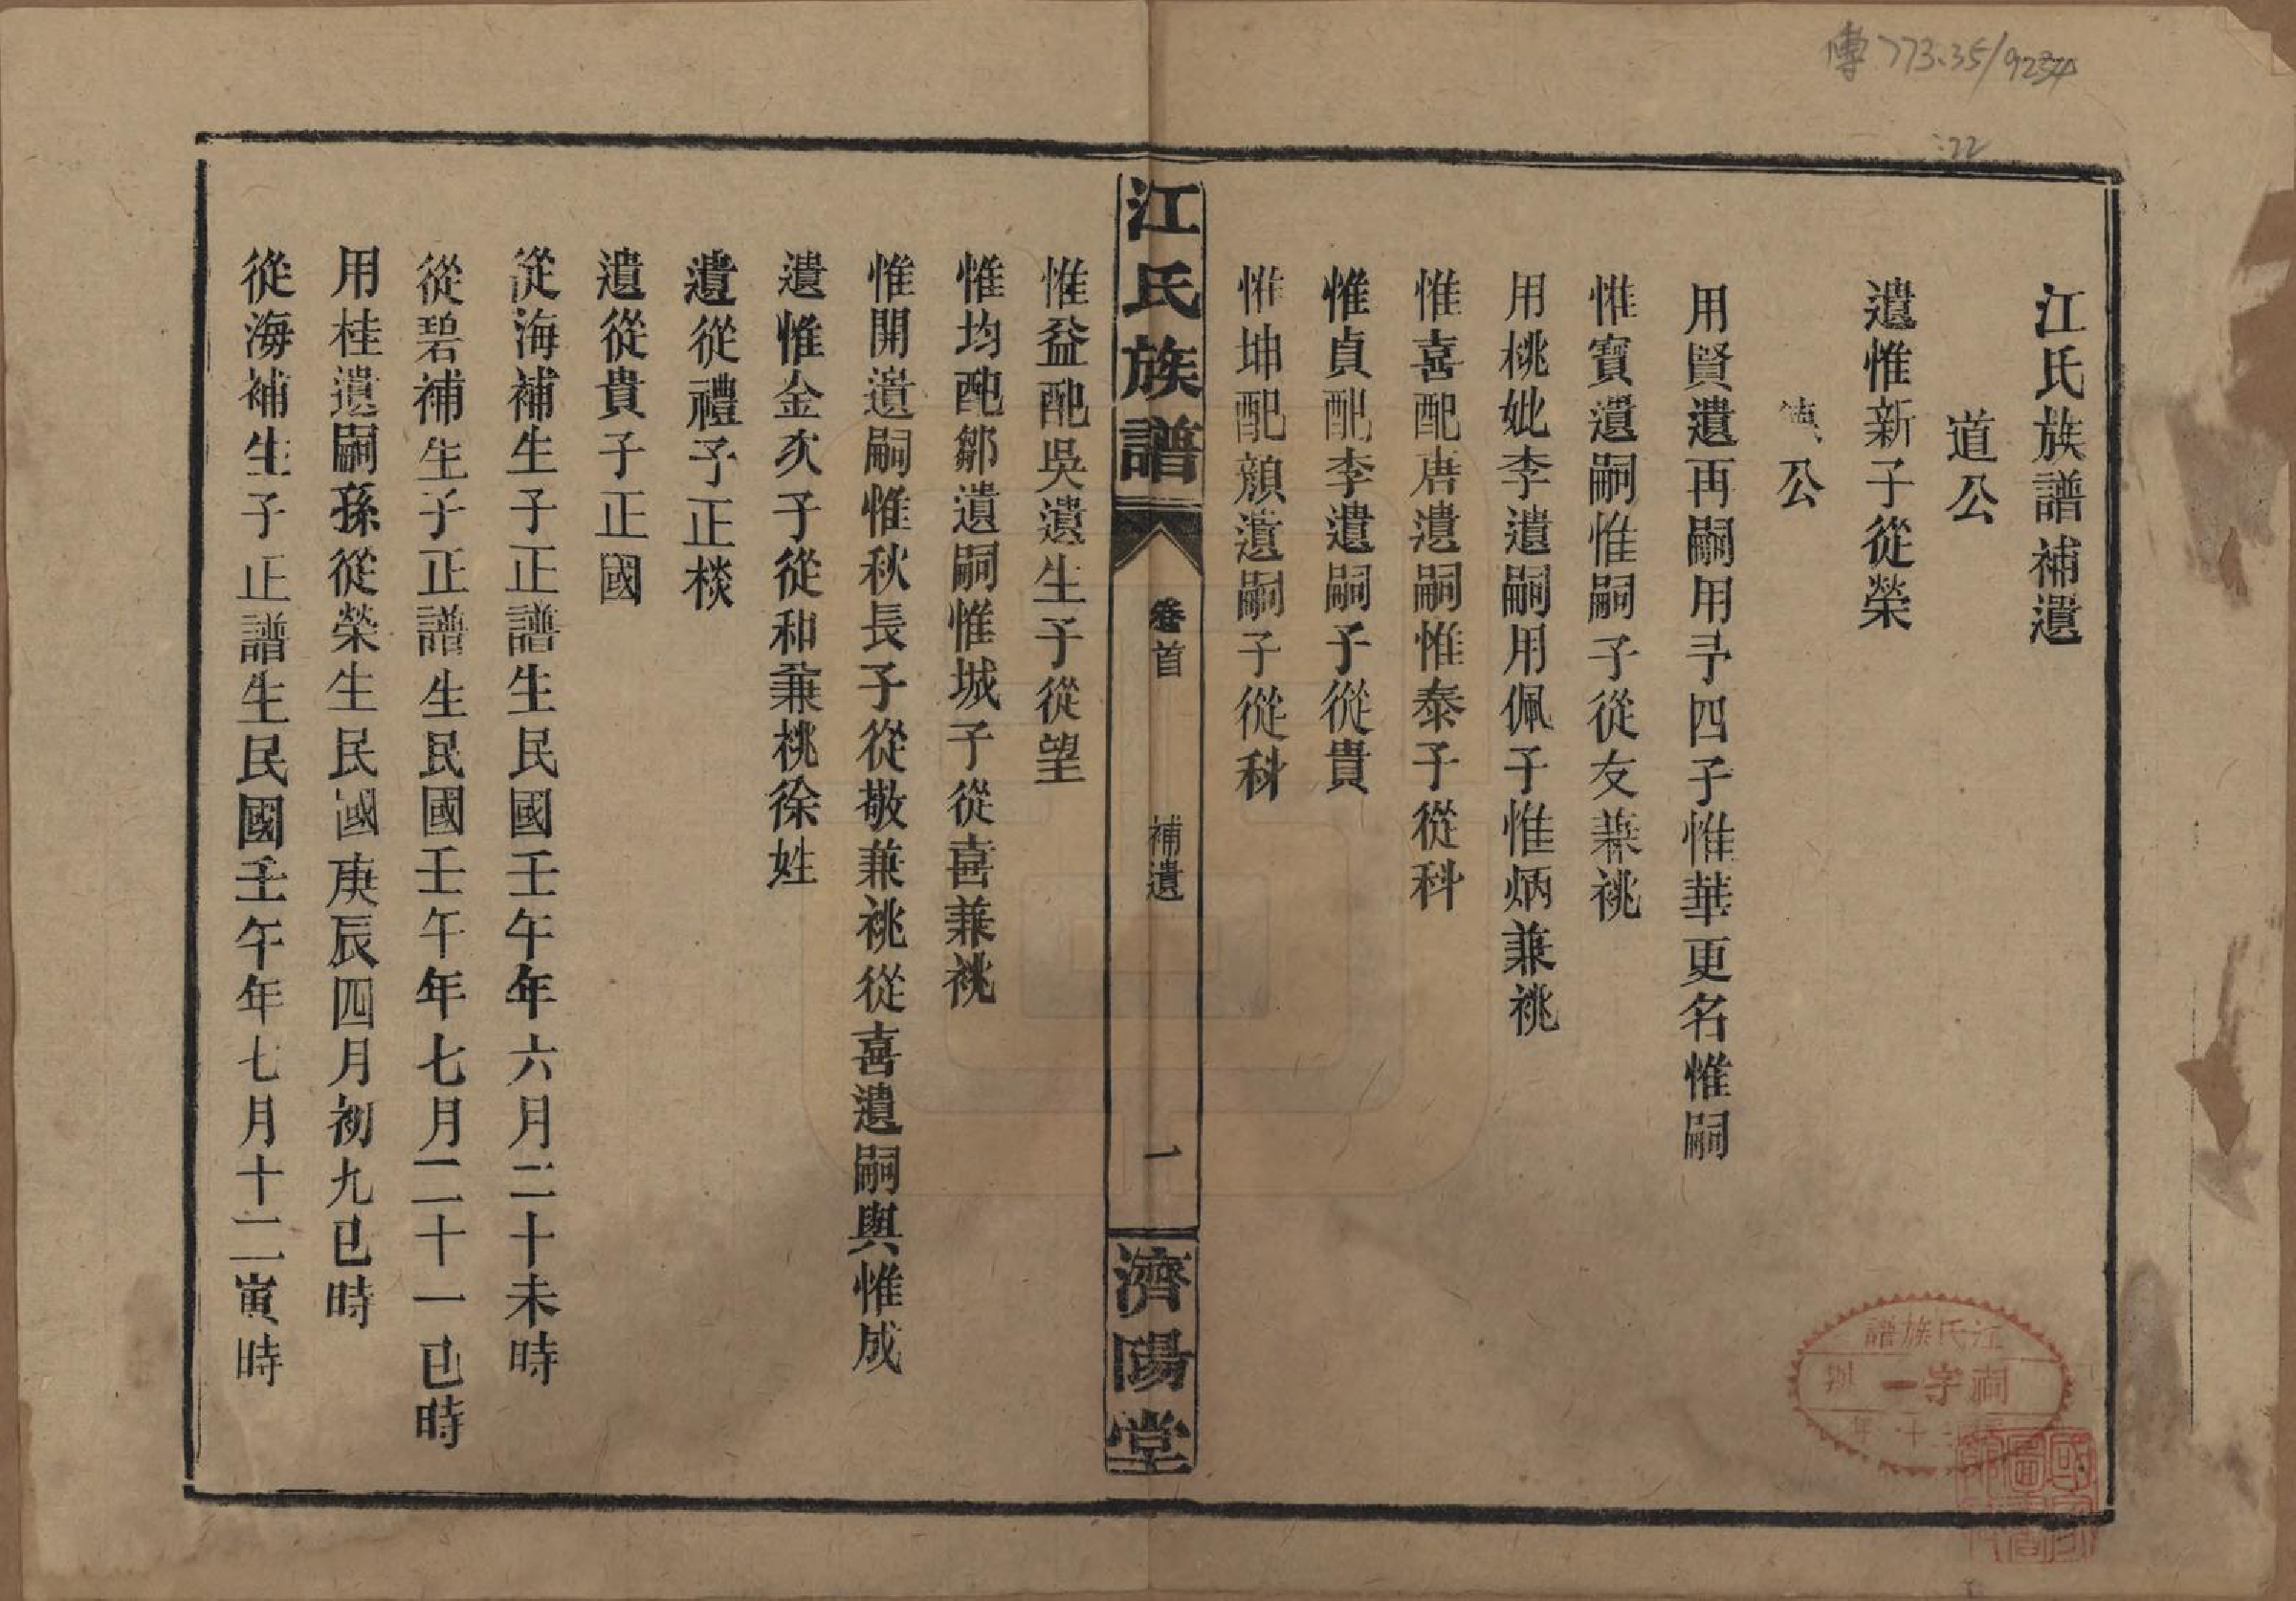 傳773.35/9234
:22
江氏族譜補遺
道公
遺惟新子從榮
公
用賢遺再嗣用予四子惟華更名惟嗣
惟寶遺嗣惟嗣子從友兼祧
用桃妣李遺嗣用佩子惟炳兼祧
惟喜配唐遺嗣惟泰子從科
惟貞配李遺嗣子從貴
惟坤配顏遺嗣子從科
江氏族譜
卷首
補遺
一
濟陽堂
惟益配吳遺生子從望
惟均配鄒遺嗣惟城子從喜兼祧
惟開遺嗣惟秋長子從敬兼祧從喜遺嗣與惟成
遺惟金次子從和兼桃徐姓
遺從禮予正棪
遺從貴子正國
從海補生子正譜生民國壬午年六月二十未時
從碧補生子正譜生民國壬午年七月二十一巳時
用桂遺嗣孫從榮生民國庚辰四月初九巳時
從海補生子正譜生民國壬午年七月十二寅時
江氏族譜
字一號